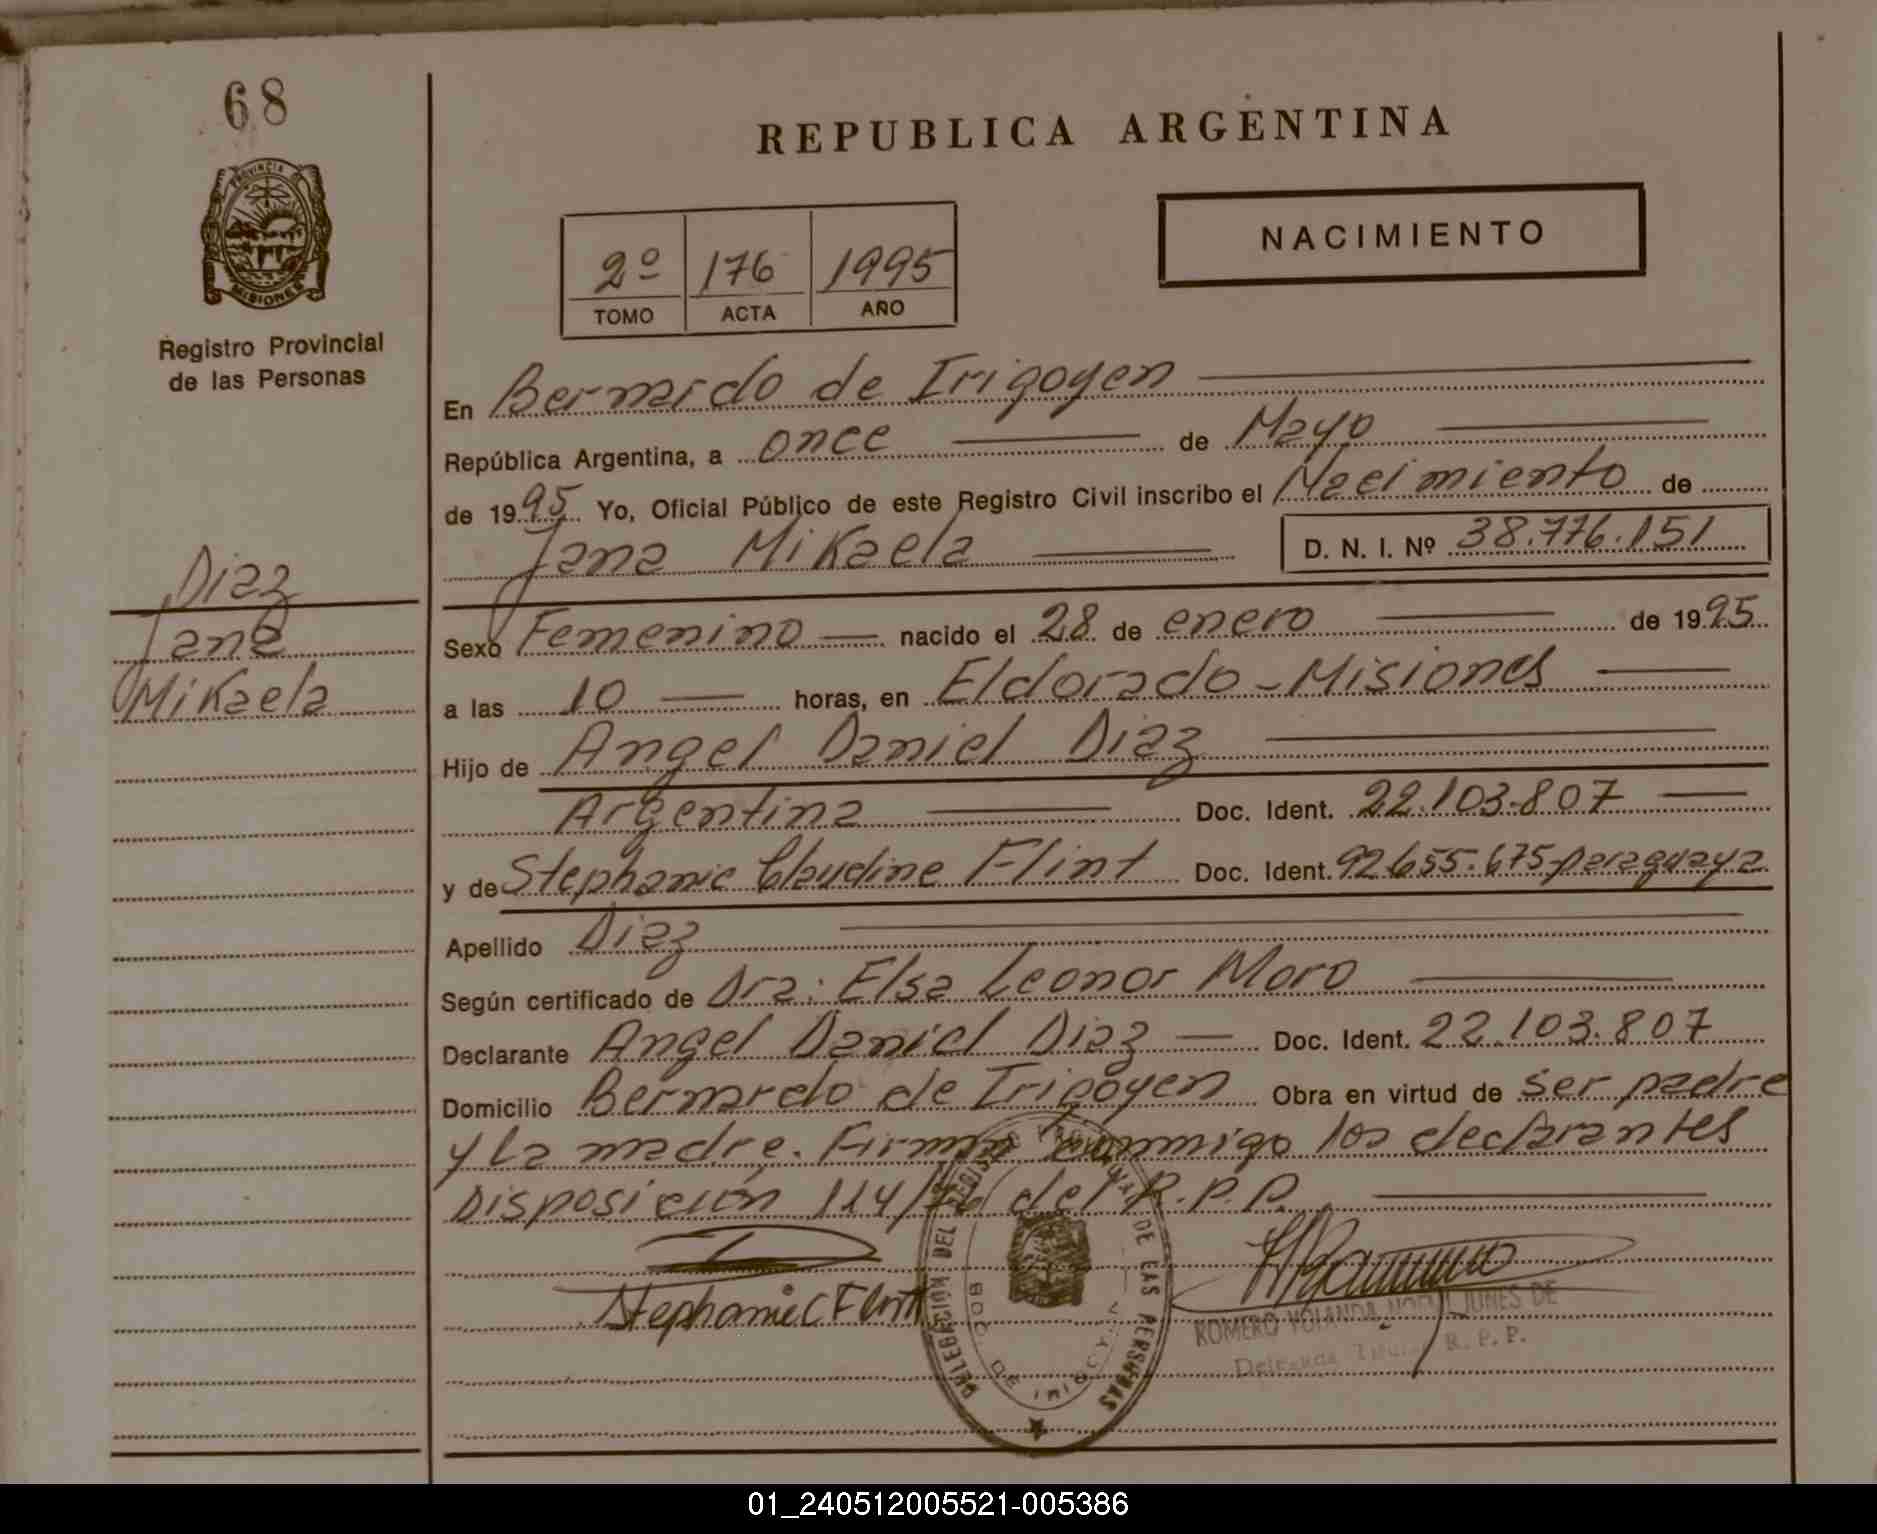 68
PROVINCIA D
MISIONES
Registro Provincial
de las Personas
Diaz
Jana
Mikaela
REPUBLICA ARGENTINA
2º 176 1995
TOMO ACTA AÑO
NACIMIENTO
En Bernardo de Irigoyen
República Argentina, a once de Mayo
de 1995 Yo, Oficial Público de este Registro Civil inscribo el Nacimiento de
Jana Mikaela D. N. I. Nº 38.776.151
Sexo Femenino nacido el 28 de enero de 1995
a las 10 horas, en Eldorado - Misiones
Hijo de Angel Daniel Diaz
Argentina Doc. Ident. 22.103.807
y de Stephanie Claudine Flint Doc. Ident. 92.655.675-paraguaya
Apellido Diaz
Según certificado de Dra: Elsa Leonor Moro
Declarante Angel Daniel Diaz Doc. Ident. 22.103.807
Domicilio Bernardo de Irigoyen Obra en virtud de ser padre
y la madre. Firman conmigo los declarantes
Disposición 114/ del R.P.P.
Stephanie C Flint
DELEGACIÓN DEL DE LAS PERSONAS
BDO DE IRIGOYEN
ROMERO YOLANDA JUNES DE
R. P. P.
01_240512005521-005386